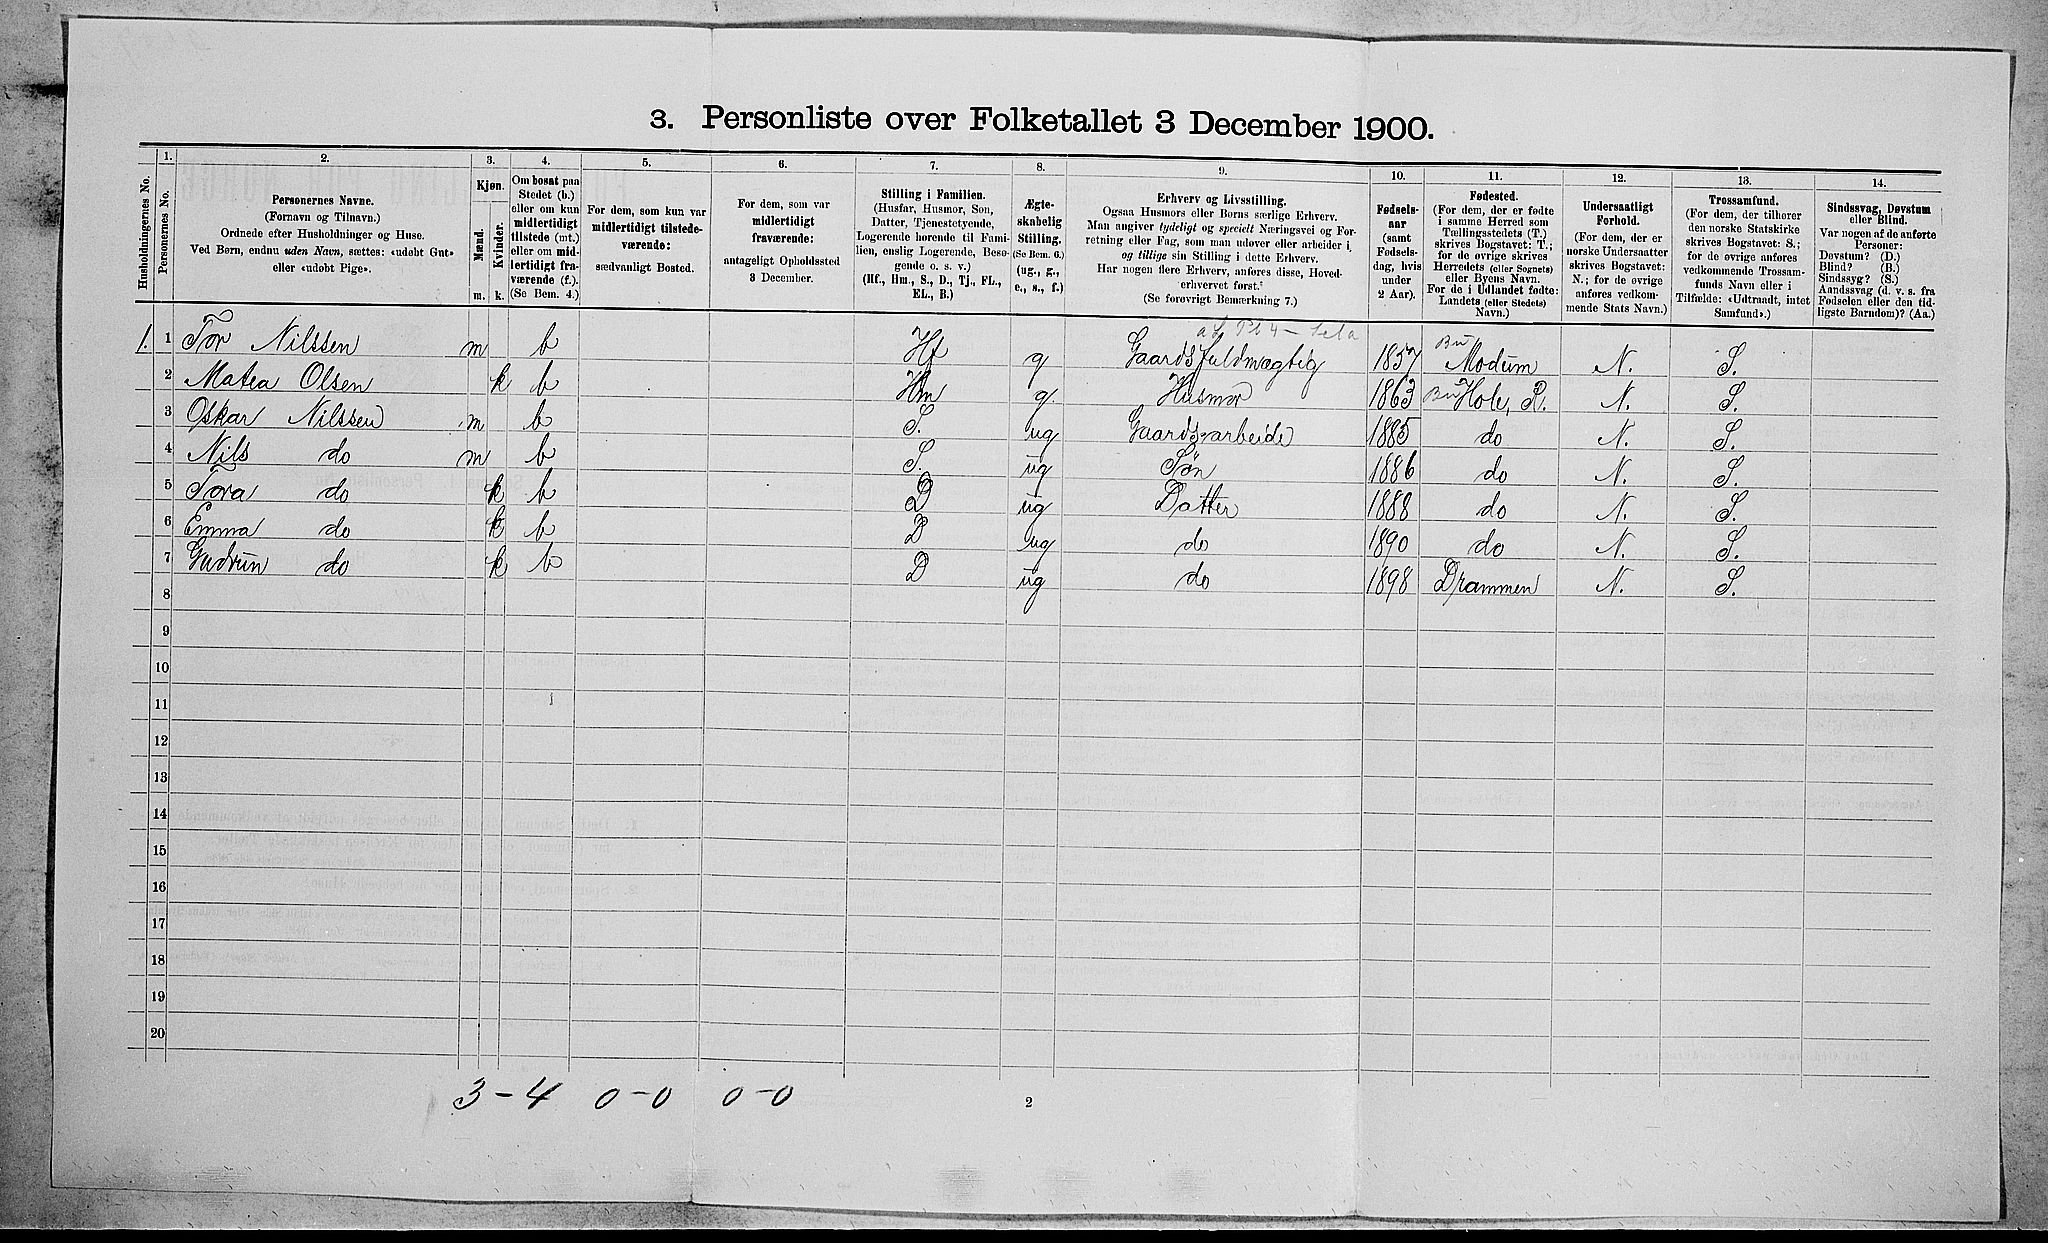 3. Personliste over Folketallet 3 December 1900.
Husholdningernes No.
1. Personernes No.
2. Personernes Navne. (Fornavn og Tilnavn.) Ordnede efter Husholdninger og Huse. Ved Børn, endnu uden Navn, sættes: «udøbt Gut» eller «udøbt Pige».
3. Kjøn. Mænd. m. Kvinder. k.
4. Om bosat paa Stedet (b.) eller om kun midlertidigt tilstede (mt.) eller om midlertidigt fraværende (f.). (Se Bem. 4.)
5. For dem, som kun var midlertidigt tilstedeværende: sædvanligt Bosted.
6. For dem, som var midlertidigt fraværende: antageligt Opholdssted 3 December.
7. Stilling i Familien. (Husfar, Husmor, Søn, Datter, Tjenestetyende, Logerende hørende til Familien, enslig Logerende, Besøgende o. s. v.) (Hf., Hm., S., D., Tj., FL., EL., B.)
8. Ægteskabelig Stilling. (Se Bem. 6.) (ug., g., e., s., f.)
9. Erhverv og Livsstilling. Ogsaa Husmors eller Børns særlige Erhverv. Man angiver tydeligt og specielt Næringsvei og Forretning eller Fag, som man udøver eller arbeider i, og tillige sin Stilling i dette Erhverv. Har nogen flere Erhverv, anføres disse, Hovederhvervet først. (Se forøvrigt Bemærkning 7.)
10. Fødselsaar (samt Fødselsdag, hvis under 2 Aar).
11. Fødested. (For dem, der er fødte i samme Herred som Tællingsstedets (T.) skrives Bogstavet: T.; for de øvrige skrives Herredets (eller Sognets) eller Byens Navn. For de i Udlandet fødte: Landets (eller Stedets) Navn.)
12. Undersaatligt Forhold. (For dem, der er norske Undersaatter skrives Bogstavet: N.; for de øvrige anføres vedkommende Stats Navn.)
13. Trossamfund. (For dem, der tilhører den norske Statskirke skrives Bogstavet: S.; for de øvrige anføres vedkommende Trossamfunds Navn eller i Tilfælde: «Udtraadt, intet Samfund».)
14. Sindssvag, Døvstum eller Blind. Var nogen af de anførte Personer: Døvstum? (D.) Blind? (B.) Sindssyg? (S.) Aandssvag (d. v. s. fra Fødselen eller den tidligste Barndom)? (Aa.)
1. 1 Tor Nilssen m b Hf g Gaardsfuldmægtig 1857 Bu Modum N. S.
2 Matea Olsen k b Hm g. Husmor 1863 Bu Hole, R. N. S.
3 Oskar Nilssen m b S. ug Gaardsarbeide 1885 do N. S.
4 Nils do m b S. ug Søn 1886 do N. S.
5 Tora do k b D ug Datter 1888 do N. S.
6 Emma do k b D ug do 1890 do N. S.
7 Gudrun do k b D ug do 1898 Drammen N. S.
8
9
10
11
12
13
14
15
16
17
18
19
20
3-4 0-0 0-0
2